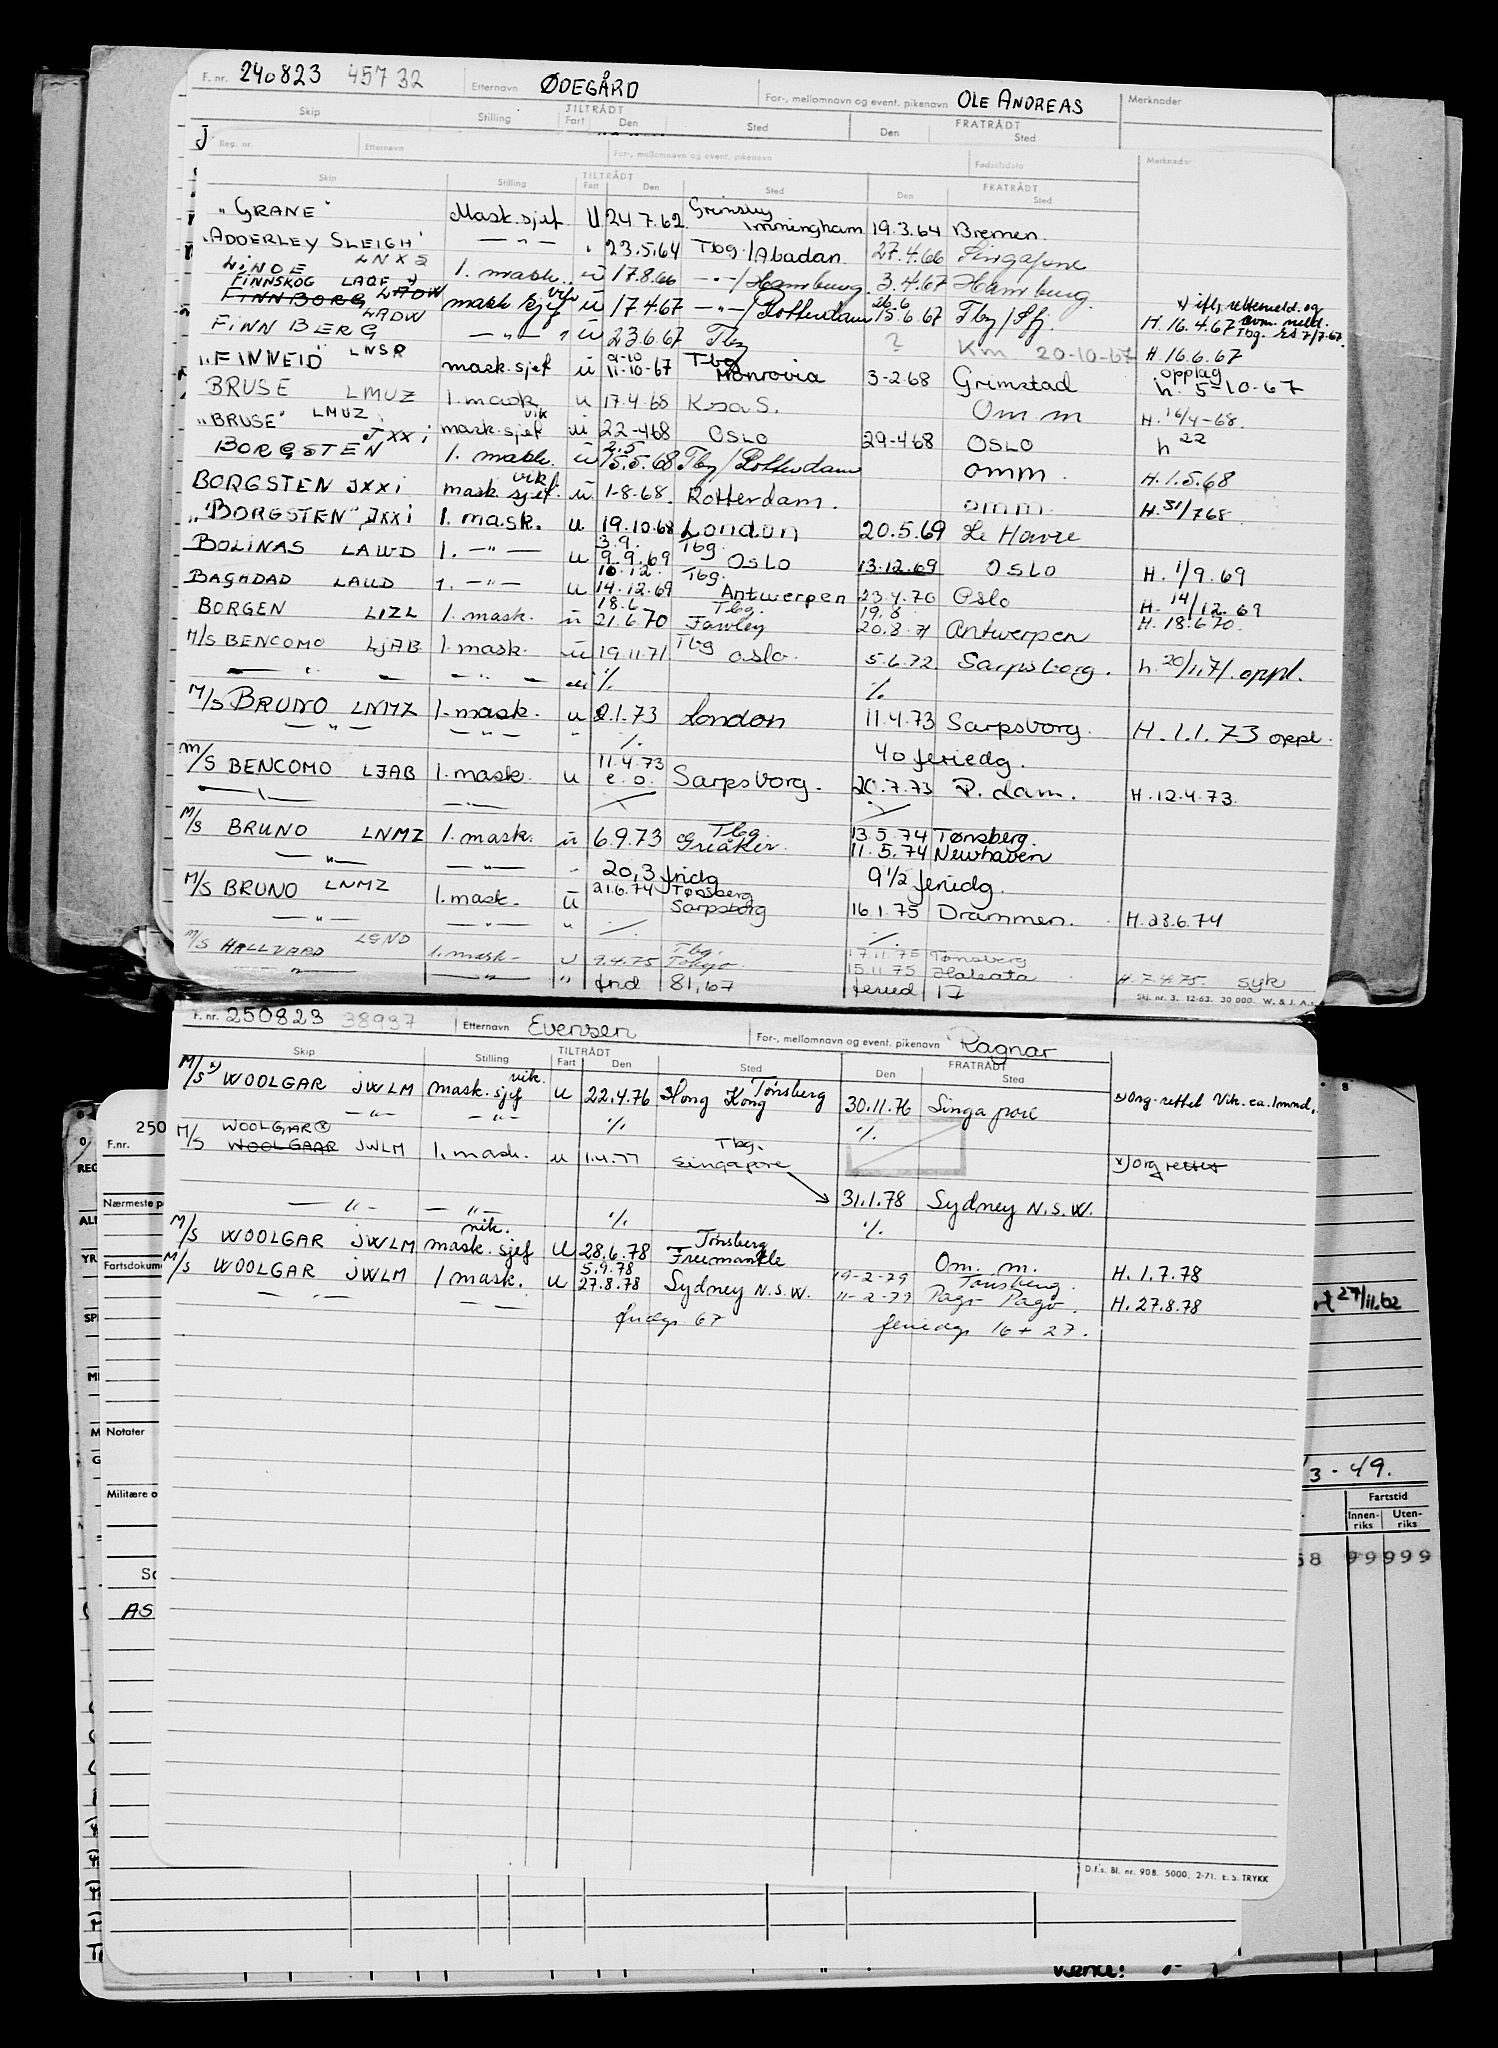 F. nr. 240823 45732 Etternavn ØDEGÅRD For-, mellomnavn og event. pikenavn OLE ANDREAS Merknader
Skip Stilling TILTRÅDT Fart Den Sted Den FRATRÅDT Sted
J
Reg. nr. Etternavn For-, mellomnavn og event. pikenavn Fødselsdato Merknader
Skip Stilling TILTRÅDT Fart Den Sted Den FRATRÅDT Sted
"GRANE" Mask.sjef U 24 7.62 Grimsby Immingham 19.3.64 Bremen
"ADDERLEY SLEIGH" — " — " 23.5.64 Tbg./Abadan 27.4.66 Singapore
LINDE LNXS 1. mask. u 17.8.66 — " —/Hamburg 3.4.67 Hamburg
FINNSKOG LAQF x)
FINNBORG LADW mask sjef vik u 17 4.67 — " —/Rotterdam 26.6 15.6.67 Tbg/Sfj. H. 16.4.67
FINN BERG LADW — " — " u 23.6.67 Tbg ? Km 20-10-67 H. 16.6.67
"FINNEID" LNSR mask.sjef u 9-10 11-10-67 Tbg Monrovia 3-2.68 Grimstad opplag h. 5-10-67
BRUSE LMUZ 1. mask u 17.4 68 K.s.a S. Om m H. 16/4-68.
"BRUSE" LMUZ mask.sjef vik u 22-468 OSLO 29-468 OSLO h 22
BORGSTEN JXXi 1. mask. u 2.5 15.5.68 Tbg/Rotterdam omm. H. 1.5.68
BORGSTEN JXXi mask. sjef. vik u 1-8-68. Rotterdam. omm. H. 31/768.
"BORGSTEN" JXXi 1. mask. u 19.10.68 London 20.5.69 Le Havre
BOLINAS LAWD 1. — " — u 3.9. 9.9.69 Tbg. OSLO 13.12.69 OSLO H. 1/9.69
BAGHDAD LAUD 1. — " — u 10.12. 14.12.69 Tbg. Antwerpen 23.4.70 Oslo H. 14/12.69
BORGEN LIZL 1. mask. u 18.6 21.6 70 Tbg. Fawley 19.8 20.8.71 Antwerpen H. 18.6 70.
M/S BENCOMO LJAB 1. mask. u 19.11.71 Tbg Oslo. 5.6.72 Sarpsborg. h. 20/11.71. oppl.
— " — — " — %. %.
M/S BRUNO LNMZ 1. mask. u 2.1.73 London 11.4.73 Sarpsborg. H. 1.1.73 oppl.
— " — — " — " %. 40 feriedg.
M/S BENCOMO LJAB 1. mask. u 11.4.73 e.o. Sarpsborg. 20.7.73 P. dam. H. 12.4.73.
M/S BRUNO LNMZ 1. mask. u 6.9.73 Tbg. Greåker. 13.5.74 Tønsberg.
11.5.74 Newhaven
— " — — " — " 20,3 fridg 9 1/2 feriedg.
M/S BRUNO LNMZ 1. mask. u 21.6.74 Tønsberg Sarpsborg 16.1.75 Drammen. H. 23.6.74
— " — — " — " %. %.
M/S HALLVARD LGND 1. mask. u 9.4.75 Tbg. Tokyo 17.11.75 Tønsberg
15.11.75 Halsata H. 7.4.75. syk
" — " — " frid 81,67 feried 17
Skj. nr. 3. 12-63. 30 000. W. & J. A.s
F. nr. 250823 38937 Etternavn Evensen For-, mellomnavn og event. pikenavn Ragnar
Skip Stilling TILTRÅDT Fart Den Sted Den FRATRÅDT Sted
M/S x) WOOLGAR JWLM mask. sjef vik. u 22.4.76 Hong Kong Tønsberg 30.11.76 Singapore x) Org. rettet Vik. ca. 1 mnd.
— " — — " — %. %.
M/S WOOLGAR x) WOOLGAAR JWLM 1. mask. u 1.4.77 Tbg. Singapore x) org rettet
31.1.78 Sydney N.S.W.
— " — — " — %. %.
M/S WOOLGAR JWLM mask. sjef vik. u 28.6.78 Tønsberg Freemantle Om. m. H. 1.7.78
M/S WOOLGAR JWLM 1 mask. u 5.9.78 27.8.78 Sydney N.S.W. 19-2-79 Tønsberg.
11-2-79 Pago Pago. H. 27.8.78
— " — — " — fridgr 67 feriedg 16 + 27.
250
F.nr.
Nærmeste p
Fartsdokume
Notater
Militære o
AS
27/11.62
3-49.
Fartstid
Innen-riks Uten-riks
68 99999
D.f.s. Bl. nr. 908. 5000. 2-71. E. S. TRYKK